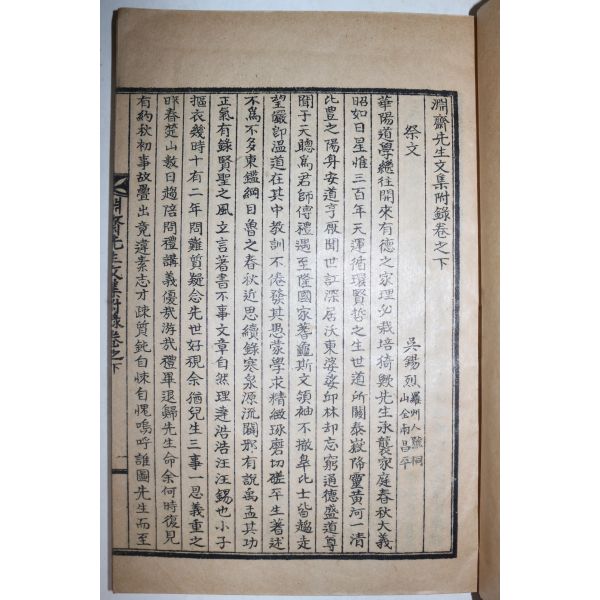 淵齋先生文集附錄卷之下
祭文
吳錫烈
羅州人號桐
山合南昌平
華陽道學繼往開來有德之家理必栽培猗歟先生承襲家庭春秋大義
昭如日星惟三百年天運循環賢哲之生世道所關泰嶽降靈黃河一清
比豊之陽身安道亨厭聞世訌深居沃東婆娑邱林却忘窮通德盛道尊
聞于天聰爲君師傅禮遇至隆國家蓍龜斯文領袖不撤臯比士皆趨走
望儼卽溫道在其中教訓不倦發其愚蒙學求精緻琢磨切磋平生著述
不爲不多東鑑綱目魯之春秋近思續錄寒泉源流闢邪有說禹孟其功
正氣有錄賢聖之風立言著書不事文章自然理達浩浩汪汪錫也小子
摳衣幾時十有二年問難質疑念先世好視余猶兒生三事一恩義重之
昨春楚山數日趨陪問禮講義優我游我禮畢退歸先生命余何時復見
有約秋初事故疊出竟違素志才疎質鈍自悚自愧嗚呼誰圖先生而至
淵齋先生文集附錄卷之下
一